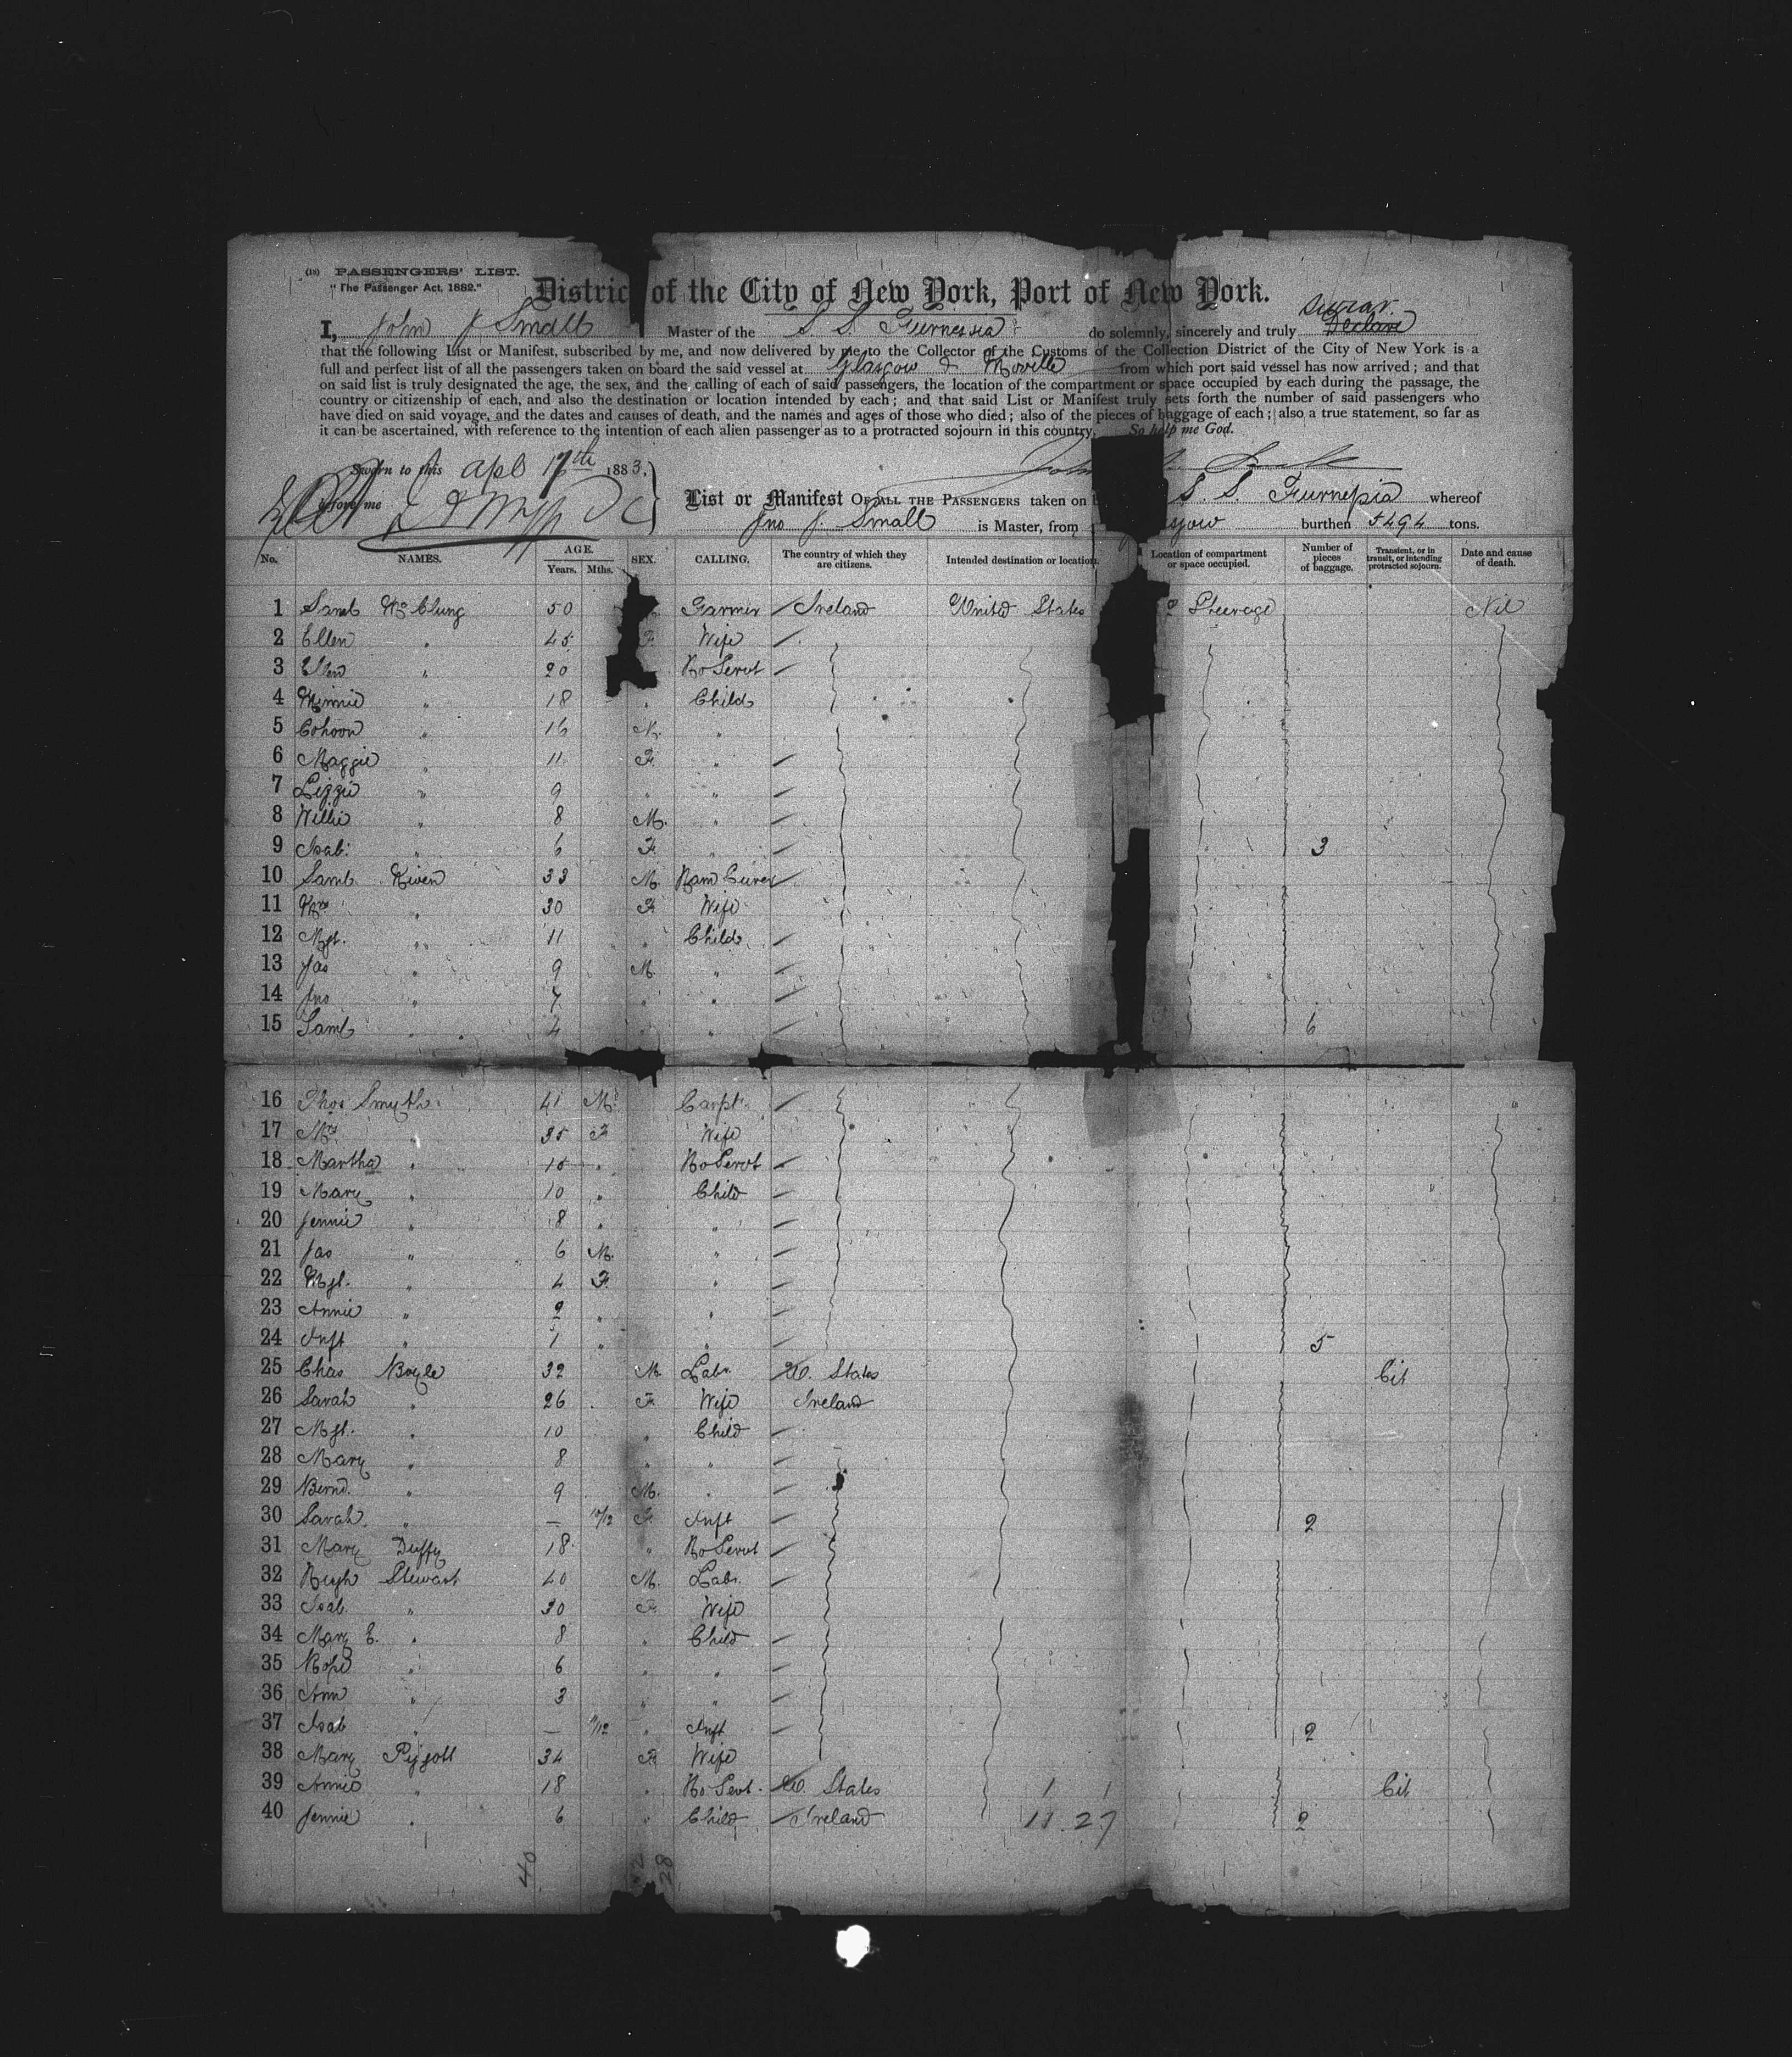 (18) PASSENGERS' LIST.
"The Passenger Act, 1882."
District of the City of New York, Port of New York.
swear.
I, John J Small Master of the S. S. Furnessia do solemnly, sincerely and truly Declare
that the following List or Manifest, subscribed by me, and now delivered by me to the Collector of the Customs of the Collection District of the City of New York is a
full and perfect list of all the passengers taken on board the said vessel at Glasgow & Moville from which port said vessel has now arrived; and that
on said list is truly designated the age, the sex, and the calling of each of said passengers, the location of the compartment or space occupied by each during the passage, the
country or citizenship of each, and also the destination or location intended by each; and that said List or Manifest truly sets forth the number of said passengers who
have died on said voyage, and the dates and causes of death, and the names and ages of those who died; also of the pieces of baggage of each; also a true statement, so far as
it can be ascertained, with reference to the intention of each alien passenger as to a protracted sojourn in this country. So help me God.
Sworn to this Apl 17th 1883.
before me
List or Manifest OF ALL THE PASSENGERS taken on S. S. Furnessia whereof
Jno J. Small is Master, from burthen 5494 tons.
No. NAMES. AGE. Years. Mths. SEX. CALLING. The country of which they are citizens. Intended destination or location. Location of compartment or space occupied. Number of pieces of baggage. Transient, or in transit, or intending protracted sojourn. Date and cause of death.
1 Saml McClung 50 Farmer Ireland United States Steerage Nil
2 Ellen " 45 F. Wife
3 Ellen " 20 Ho Servt
4 Minnie " 18 " Child
5 Cohoon " 16 M. "
6 Maggie " 11 F. "
7 Lizzie " 9 " "
8 Willie " 8 M. "
9 Isab. " 6 F. " 3
10 Saml. Kiven 33 M.
11 Mrs " 30 F. Wife
12 Mgt. " 11 " Child
13 Jas " 9 M "
14 Jno " 7 " "
15 Saml " 4 " " 6
16 Thos Smyth 41 M. Carpt.
17 Mrs " 35 F Wife
18 Martha " 15 " Ho Servt
19 Mary " 10 " Child
20 Jennie " 8 " "
21 Jas " 6 M. "
22 Mgt. " 4 F. "
23 Annie " 2 " "
24 Inft " 1 " " 5
25 Chas Boyle 32 M Labr. U. States Cit
26 Sarah " 26 F. Wife Ireland
27 Mgt. " 10 " Child
28 Mary " 8 " "
29 Bernd. " 9 M. "
30 Sarah " — 10/12 F. Inft 2
31 Mary Duffy 18 " Ho Servt
32 Hugh Stewart 40 M. Labr.
33 Isab. " 30 F. Wife
34 Mary E. " 8 " Child
35 Rose " 6 " "
36 Ann " 3 " "
37 Isab " — 11/12 " Inft 2
38 Mary Piggott 34 F. Wife
39 Annie " 18 " Ho Sevt. U. States Cit
40 Jennie " 6 " Child Ireland 11.27 2
40 12 28